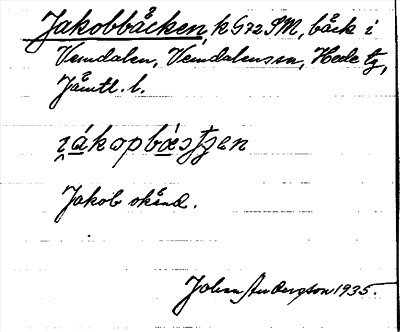 Jakobbäcken, k G 72 SM, bäck i
Vemdalen, Vemdalens sn, Hede tg,
Jämtl. l.
Jakob okänd.
Johan Andersson 1935.